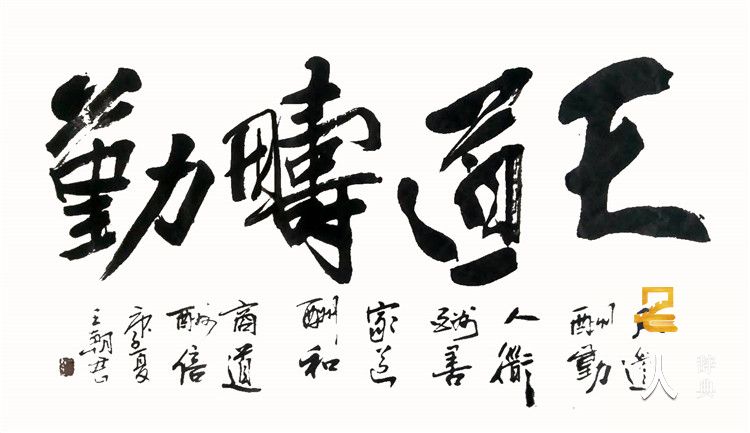 天道疇勤
天道
酬勤
人衜
酬善
家道
酬和
商道
酬信
庚子夏
王朝君
人
辞典